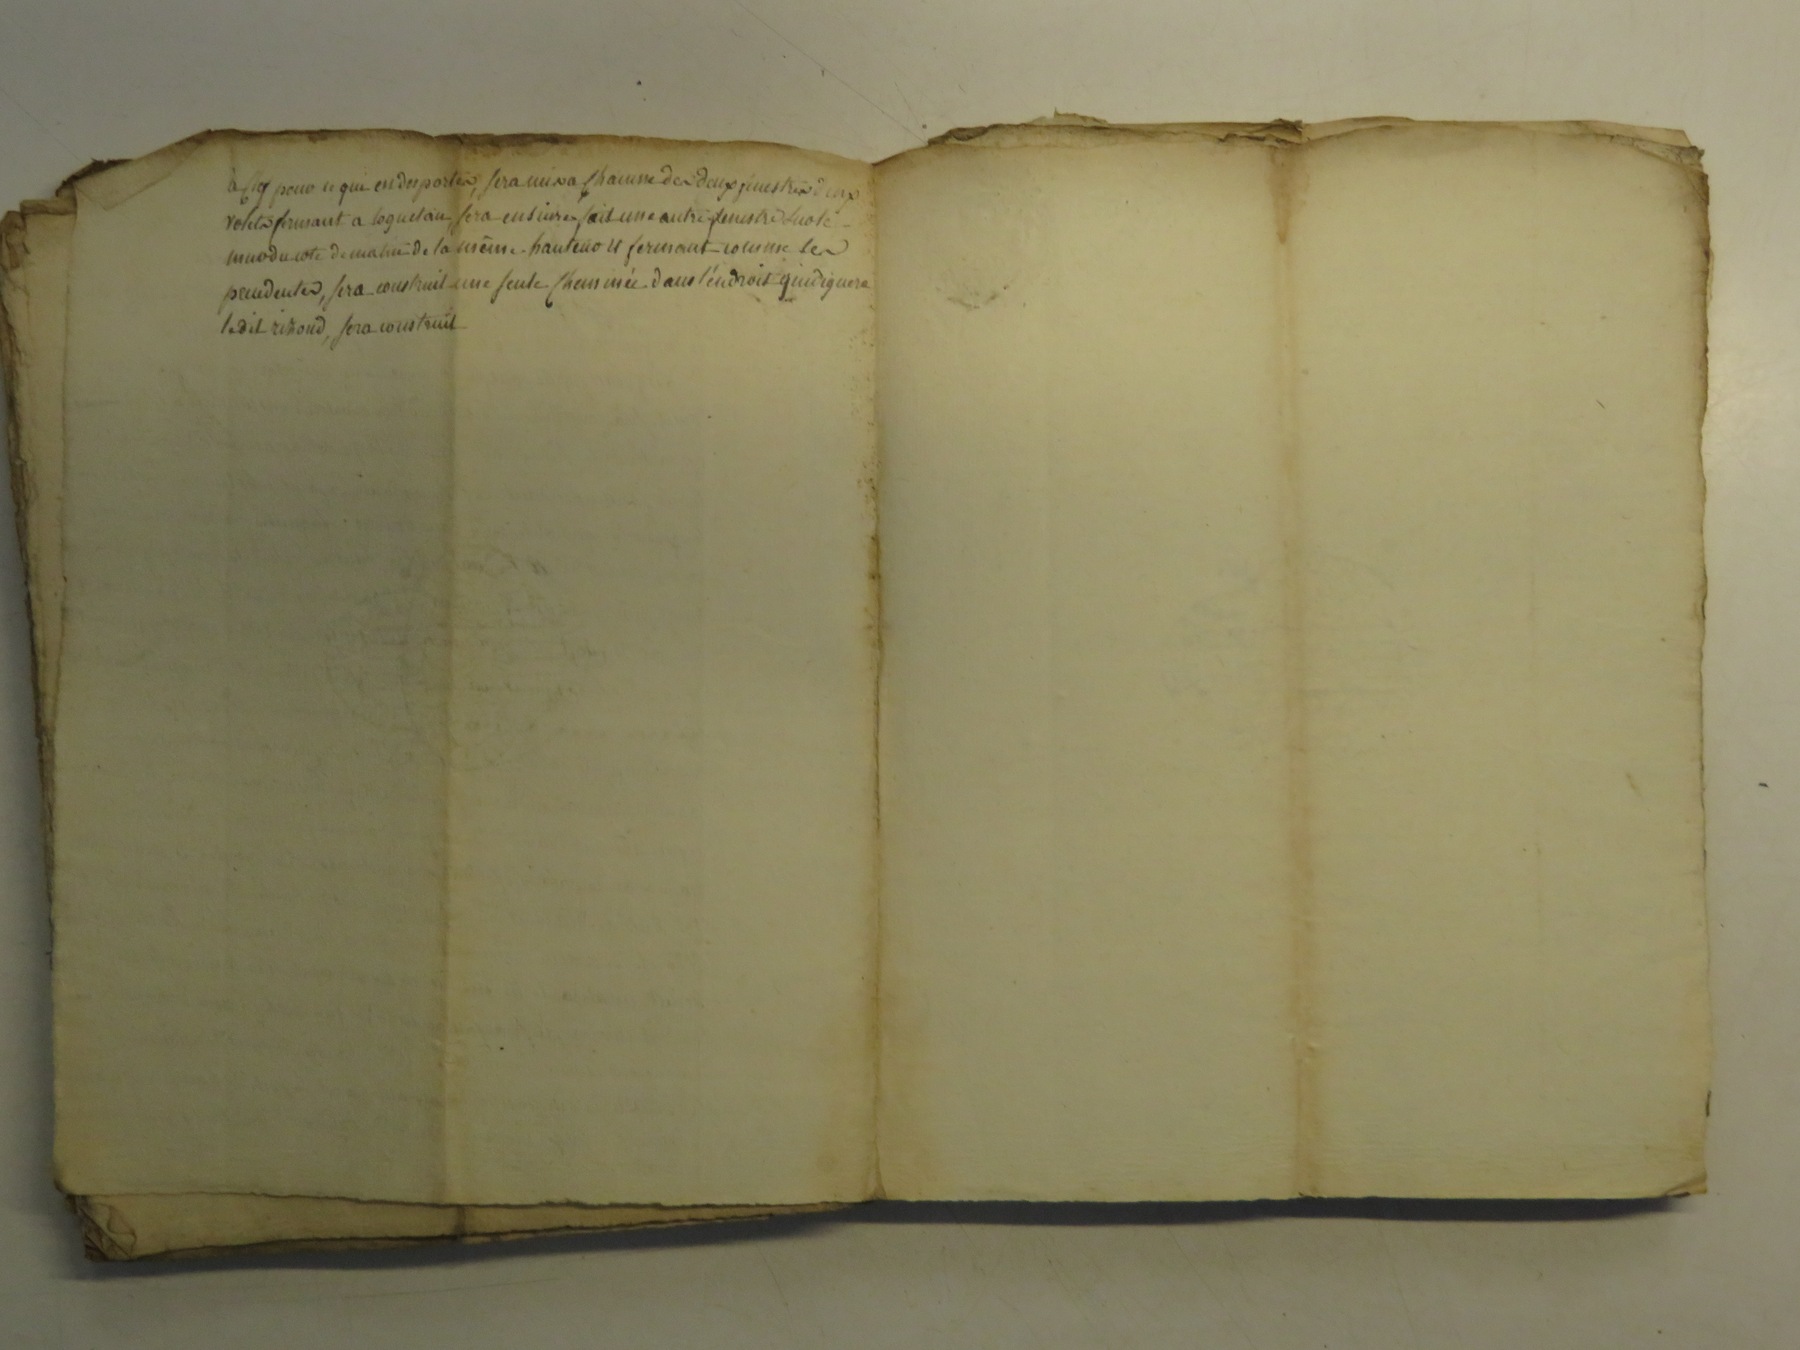 a clef pour ce qui est des portes, sera mis a Chacune des deux fenestres deux
volets fermant a loquetau, sera ensuire fait une autre fenestre
mur du coté de matin de la même hauteur et fermant comme les
precedentes, sera construit une seule Cheminée dans l'endroit quindiquera
ledit rivoud, sera construit